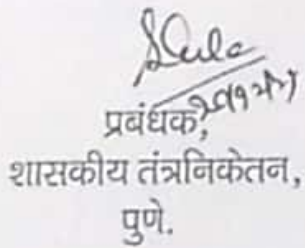 प्रबंधक,
शासकीय तंत्रनिकेतन,
पुणे.